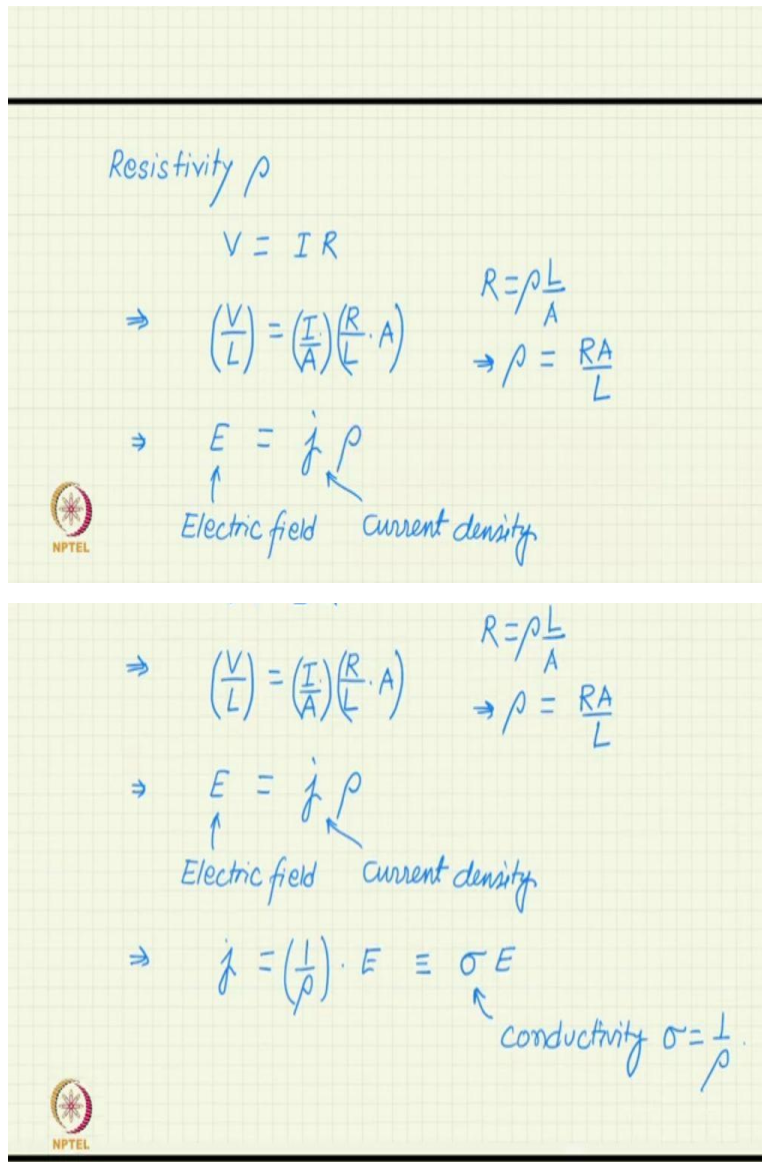 Resistivity ρ
V = IR
⇒ (V/L) = (I/A)(R/L · A)
R = ρ L/A
⇒ ρ = RA/L
⇒ E = j ρ
Electric field Current density
NPTEL
⇒ (V/L) = (I/A)(R/L · A)
R = ρ L/A
⇒ ρ = RA/L
⇒ E = j ρ
Electric field Current density
⇒ j = (1/ρ) · E ≡ σ E
conductivity σ = 1/ρ.
NPTEL